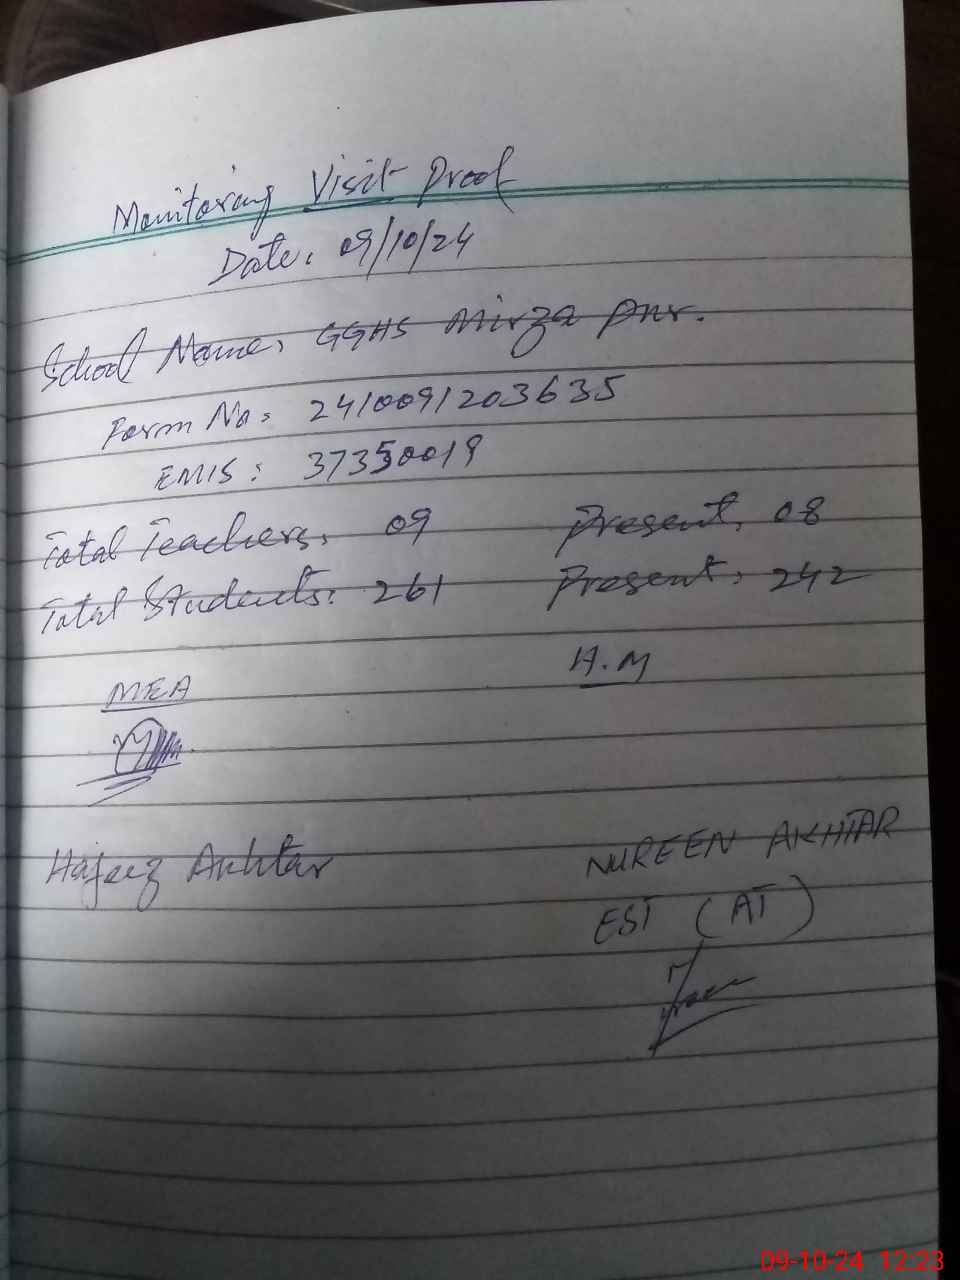 Monitoring Visit Proof
Date: 09/10/24
School Name: GGHS Mirza Pur.
Form No: 2410091203635
EMIS: 37350019
Total Teachers: 09 Present: 08
Total Students: 261 Present: 242
MEA H.M
Hafeez Akhtar NUREEN AKHTAR
EST (AT)
09-10-24 12:23